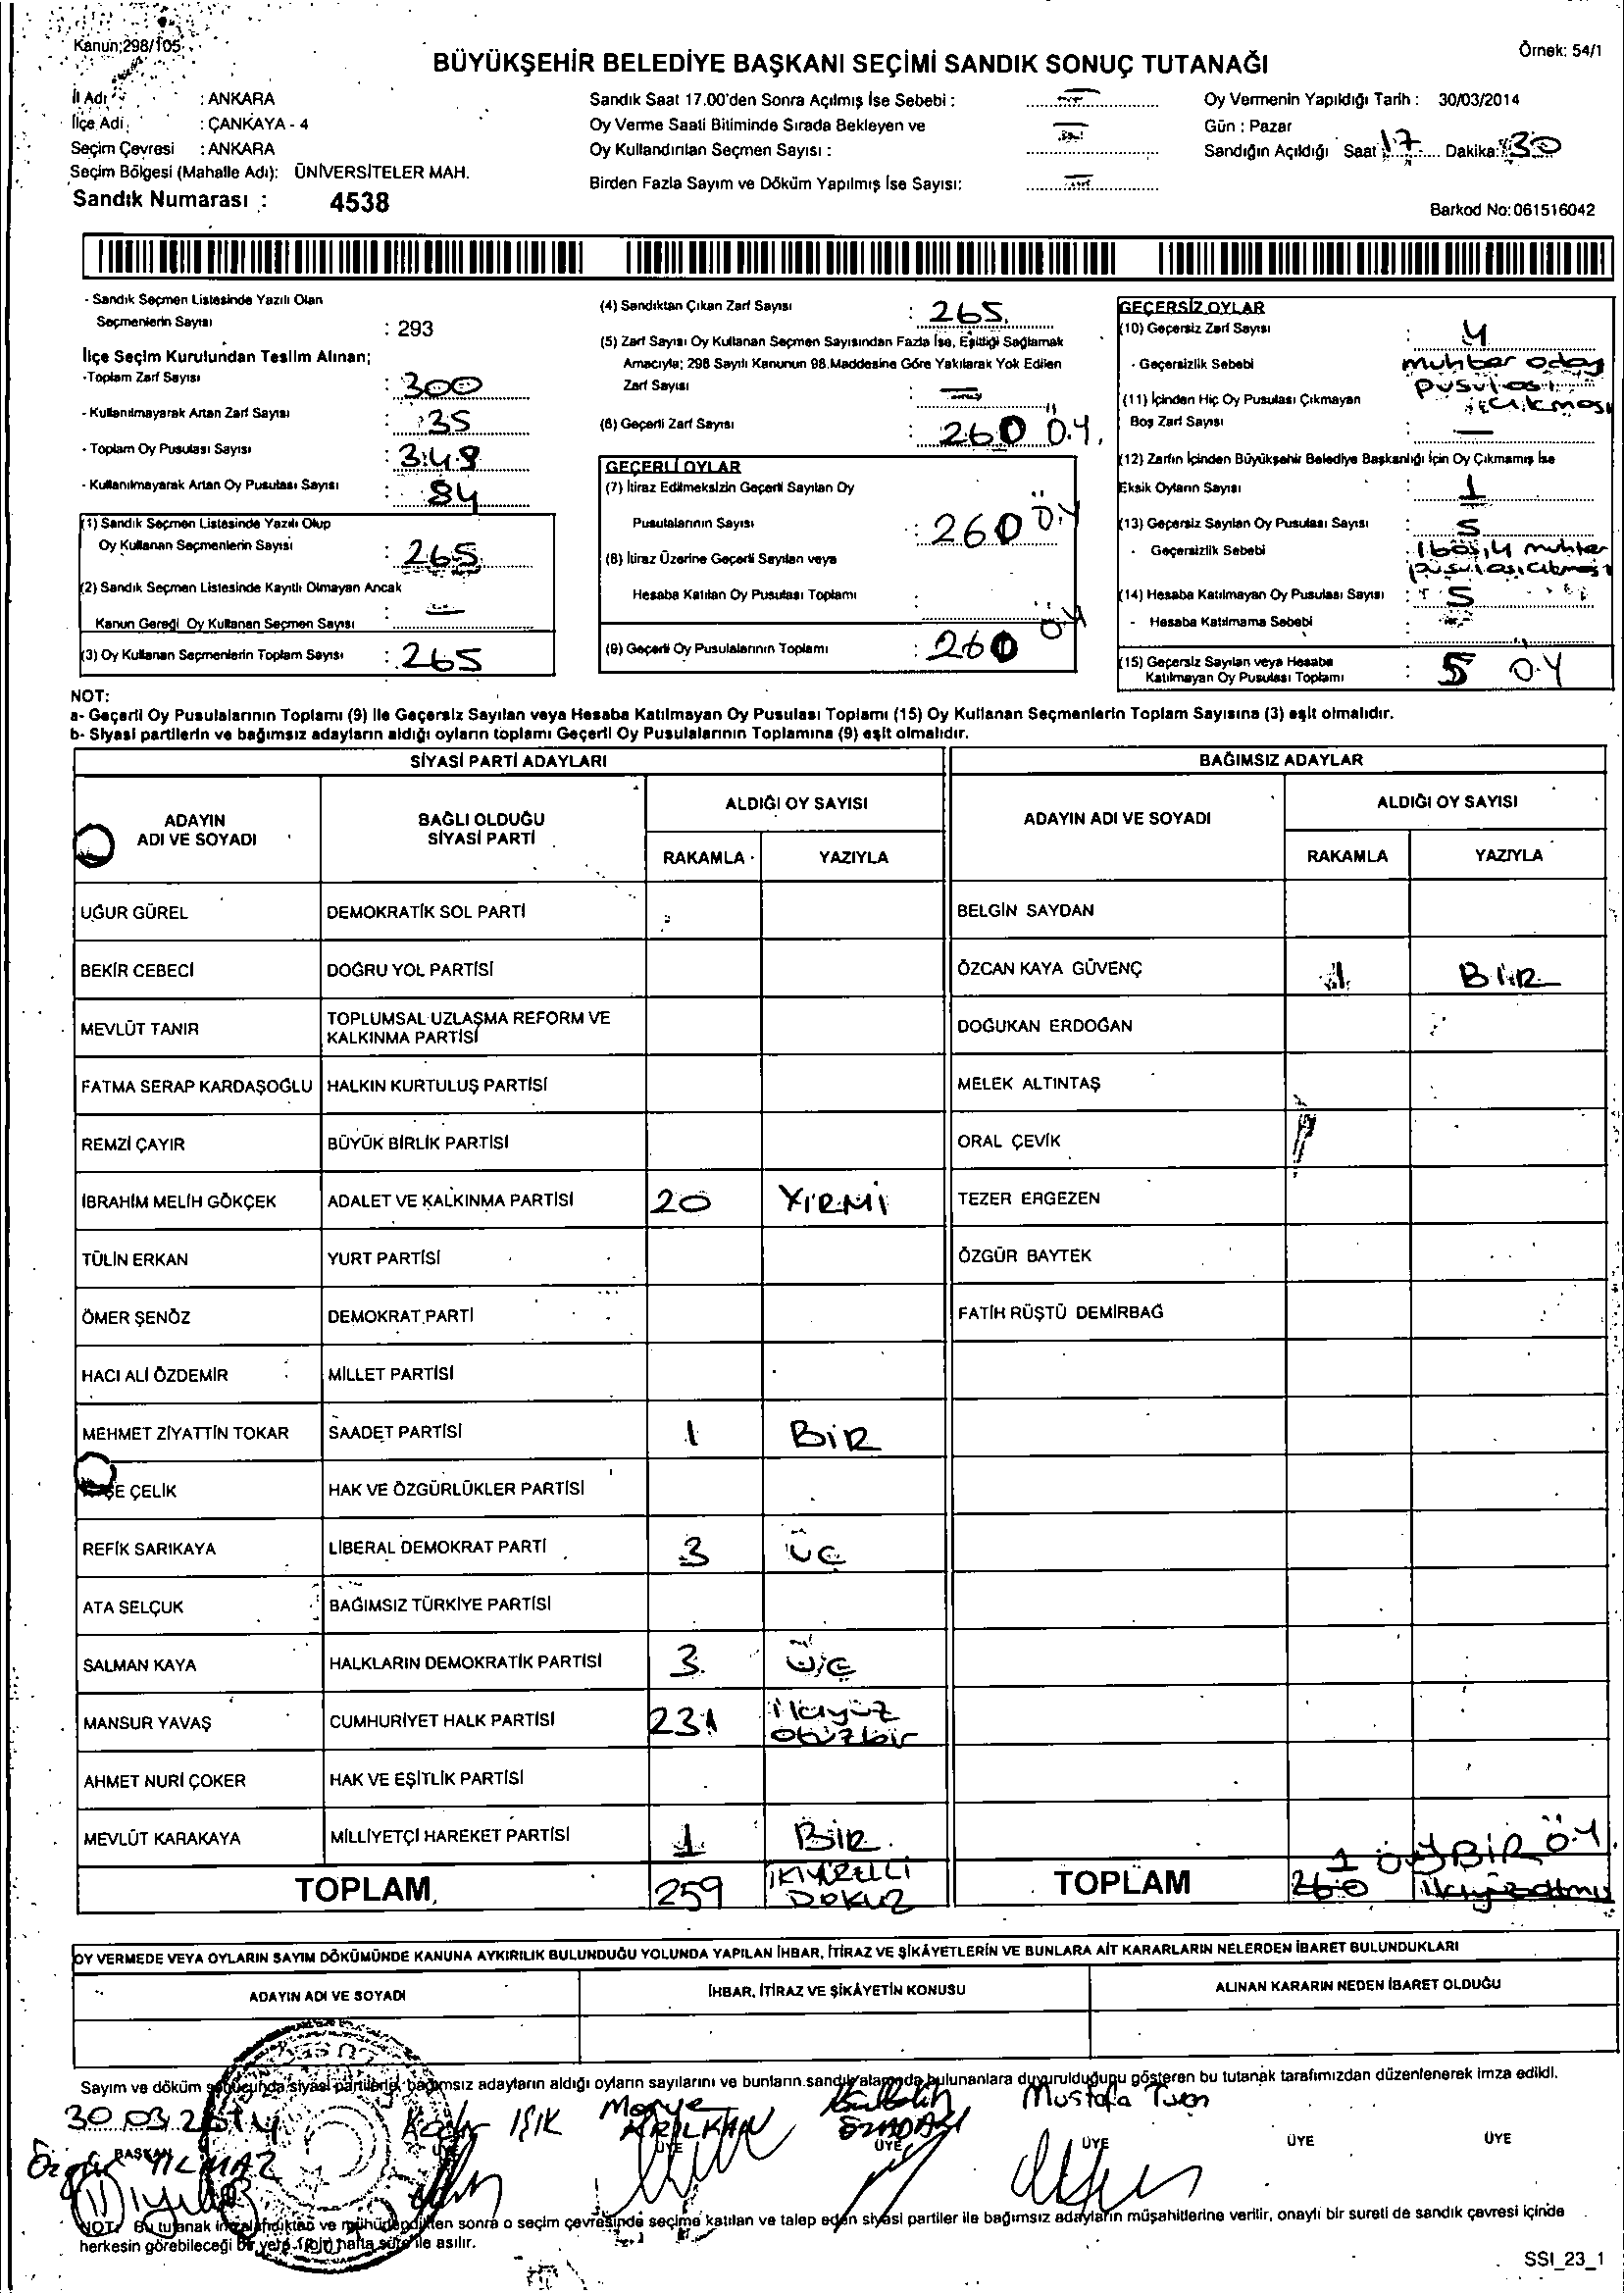 Kanun;298/105
Örnek: 54/1
BÜYÜKŞEHİR BELEDİYE BAŞKANI SEÇİMİ SANDIK SONUÇ TUTANAĞI
İl Adı : ANKARA
İlçe Adı : ÇANKAYA - 4
Seçim Çevresi : ANKARA
Seçim Bölgesi (Mahalle Adı): ÜNİVERSİTELER MAH.
Sandık Numarası : 4538
Sandık Saat 17.00'den Sonra Açılmış İse Sebebi : —
Oy Verme Saati Bitiminde Sırada Bekleyen ve
Oy Kullandırılan Seçmen Sayısı : —
Birden Fazla Sayım ve Döküm Yapılmış İse Sayısı: —
Oy Vermenin Yapıldığı Tarih : 30/03/2014
Gün : Pazar
Sandığın Açıldığı Saat 17 Dakika: 30
Barkod No:061516042
- Sandık Seçmen Listesinde Yazılı Olan
Seçmenlerin Sayısı : 293
İlçe Seçim Kurulundan Teslim Alınan;
-Toplam Zarf Sayısı : 300
- Kullanılmayarak Artan Zarf Sayısı : 35
- Toplam Oy Pusulası Sayısı : 349
- Kullanılmayarak Artan Oy Pusulası Sayısı : 84
(1) Sandık Seçmen Listesinde Yazılı Olup
Oy Kullanan Seçmenlerin Sayısı : 265
(2) Sandık Seçmen Listesinde Kayıtlı Olmayan Ancak
Kanun Gereği Oy Kullanan Seçmen Sayısı : —
(3) Oy Kullanan Seçmenlerin Toplam Sayısı : 265
(4) Sandıktan Çıkan Zarf Sayısı : 265
(5) Zarf Sayısı Oy Kullanan Seçmen Sayısından Fazla İse, Eşitliği Sağlamak
Amacıyla; 298 Sayılı Kanunun 98.Maddesine Göre Yakılarak Yok Edilen
Zarf Sayısı : —
(6) Geçerli Zarf Sayısı : 260 Ö.Y.
GEÇERLİ OYLAR
(7) İtiraz Edilmeksizin Geçerli Sayılan Oy
Pusulalarının Sayısı : 260 Ö.Y
(8) İtiraz Üzerine Geçerli Sayılan veya
Hesaba Katılan Oy Pusulası Toplamı :
(9) Geçerli Oy Pusulalarının Toplamı : 260 Ö.Y
GEÇERSİZ OYLAR
(10) Geçersiz Zarf Sayısı : 4
- Geçersizlik Sebebi muhtar aday
pusulası
çıkması
(11) İçinden Hiç Oy Pusulası Çıkmayan
Boş Zarf Sayısı : —
(12) Zarfın İçinden Büyükşehir Belediye Başkanlığı İçin Oy Çıkmamış İse
Eksik Oyların Sayısı : 1
(13) Geçersiz Sayılan Oy Pusulası Sayısı : 5
- Geçersizlik Sebebi : 1 boş, 4 muhtar
pusulası çıkması
(14) Hesaba Katılmayan Oy Pusulası Sayısı : 5
- Hesaba Katılmama Sebebi :
(15) Geçersiz Sayılan veya Hesaba
Katılmayan Oy Pusulası Toplamı : 5 Ö.Y
NOT:
a- Geçerli Oy Pusulalarının Toplamı (9) İle Geçersiz Sayılan veya Hesaba Katılmayan Oy Pusulası Toplamı (15) Oy Kullanan Seçmenlerin Toplam Sayısına (3) eşit olmalıdır.
b- Siyasi partilerin ve bağımsız adayların aldığı oyların toplamı Geçerli Oy Pusulalarının Toplamına (9) eşit olmalıdır.
SİYASİ PARTİ ADAYLARI
BAĞIMSIZ ADAYLAR
ADAYIN
ADI VE SOYADI
BAĞLI OLDUĞU
SİYASİ PARTİ
ALDIĞI OY SAYISI
RAKAMLA YAZIYLA
ADAYIN ADI VE SOYADI
ALDIĞI OY SAYISI
RAKAMLA YAZIYLA
UĞUR GÜREL DEMOKRATİK SOL PARTİ BELGİN SAYDAN
BEKİR CEBECİ DOĞRU YOL PARTİSİ ÖZCAN KAYA GÜVENÇ 1 BİR
MEVLÜT TANIR TOPLUMSAL UZLAŞMA REFORM VE
KALKINMA PARTİSİ DOĞUKAN ERDOĞAN
FATMA SERAP KARDAŞOĞLU HALKIN KURTULUŞ PARTİSİ MELEK ALTINTAŞ
REMZİ ÇAYIR BÜYÜK BİRLİK PARTİSİ ORAL ÇEVİK
İBRAHİM MELİH GÖKÇEK ADALET VE KALKINMA PARTİSİ 20 YİRMİ TEZER ERGEZEN
TÜLİN ERKAN YURT PARTİSİ ÖZGÜR BAYTEK
ÖMER ŞENÖZ DEMOKRAT PARTİ FATİH RÜŞTÜ DEMİRBAĞ
HACI ALİ ÖZDEMİR MİLLET PARTİSİ
MEHMET ZİYATTİN TOKAR SAADET PARTİSİ 1 BİR
ÇELİK HAK VE ÖZGÜRLÜKLER PARTİSİ
REFİK SARIKAYA LİBERAL DEMOKRAT PARTİ 3 ÜÇ
ATA SELÇUK BAĞIMSIZ TÜRKİYE PARTİSİ
SALMAN KAYA HALKLARIN DEMOKRATİK PARTİSİ 3 ÜÇ
MANSUR YAVAŞ CUMHURİYET HALK PARTİSİ 231 ikiyüz
otuzbir
AHMET NURİ ÇOKER HAK VE EŞİTLİK PARTİSİ
MEVLÜT KARAKAYA MİLLİYETÇİ HAREKET PARTİSİ 1 BİR
TOPLAM 259 İKİYÜZELLİ
DOKUZ
TOPLAM 1 Ö.Y BİR Ö.Y.
260 ikiyüzaltmış
OY VERMEDE VEYA OYLARIN SAYIM DÖKÜMÜNDE KANUNA AYKIRILIK BULUNDUĞU YOLUNDA YAPILAN İHBAR, İTİRAZ VE ŞİKÂYETLERİN VE BUNLARA AİT KARARLARIN NELERDEN İBARET BULUNDUKLARI
ADAYIN ADI VE SOYADI İHBAR, İTİRAZ VE ŞİKÂYETİN KONUSU ALINAN KARARIN NEDEN İBARET OLDUĞU
Sayım ve döküm sonucunda siyasi partilerin, bağımsız adayların aldığı oyların sayılarını ve bunların sandık alanında bulunanlara duyurulduğunu gösteren bu tutanak tarafımızdan düzenlenerek imza edildi.
30.03.2014 IŞIK Mustafa
BAŞKAN ÜYE ÜYE ÜYE ÜYE ÜYE
YILMAZ
NOT: Bu tutanak imzalandıktan ve mühürlendikten sonra o seçim çevresinde seçime katılan ve talep eden siyasi partiler ile bağımsız adayların müşahitlerine verilir, onaylı bir sureti de sandık çevresi içinde
herkesin görebileceği bir yere 1(bir) hafta süre ile asılır.
SSI_23_1